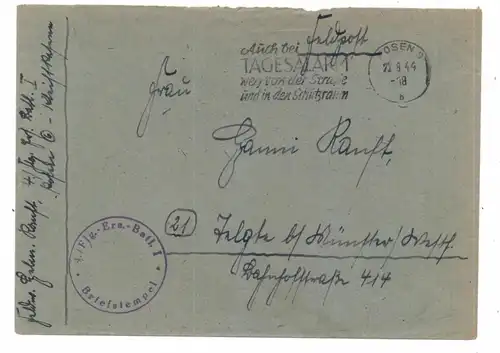 Feldpost
Auch bei
TAGESALARM
weg von der Straße
und in den Schutzraum
POSEN 9
22.8.44
-18
Frau
Hanni Ranft,
(21)
Telgte b/Münster/Westf.
Bahnhofstraße 414
4./Flg.-Ers.-Batl. I
Briefstempel
Ranft, 4./Flg. Ers. Batl. I
Posen